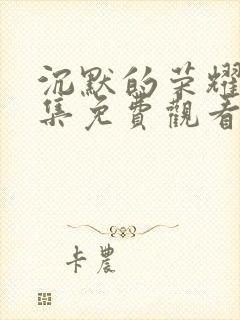 沉默的荣耀
集免費觀看
卡農